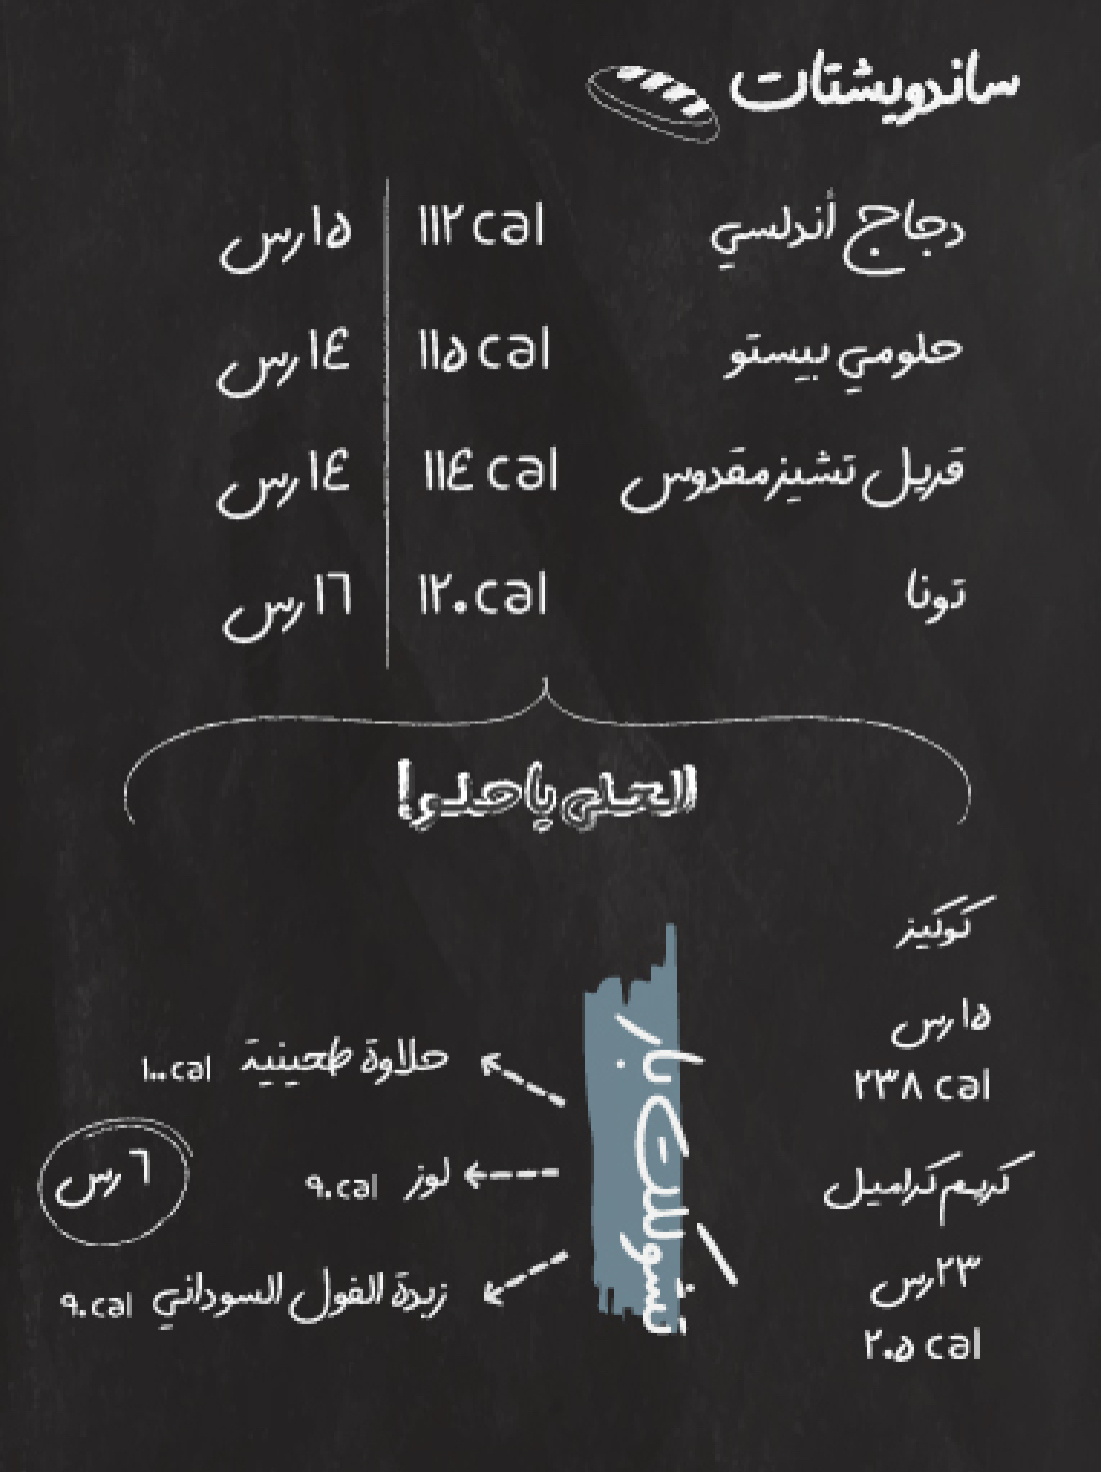 ساندويشتات
دجاج أندلسي ١١٢ cal ١٥ رس
حلومي بيستو ١١٥ cal ١٤ رس
قريل تشيز مقدوس ١١٤ cal ١٤ رس
تونا ١٢٠ cal ١٦ رس
الحلى يا حلو!
كوكيز
١٥ رس
٢٣٨ cal
كريم كراميل
٢٣ رس
٢٠٥ cal
تشوكلت بار
حلاوة طحينية ١٠٠ cal
لوز ٩٠ cal
زبدة الفول السوداني ٩٠ cal
٦ رس